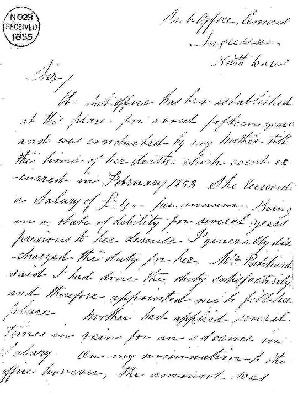 IN 029
RECEIVED
1855
Sub Office,
North Wales
Sir,
A sub office has been established
at this place for about fifteen years
and was conducted by my Mother till
the time of her death which event oc-
curred in February 1853 She received
a Salary of £ per annum. Being
in a state of debility for several years
previous to her decease I generally dis
charged the duty for her. Mr
said I had done the duty satisfactorily
and therefore appointed me to fill her
place Mother had applied several
times in vain for an advance in
Salary On my nomination to the
office however, the amount was